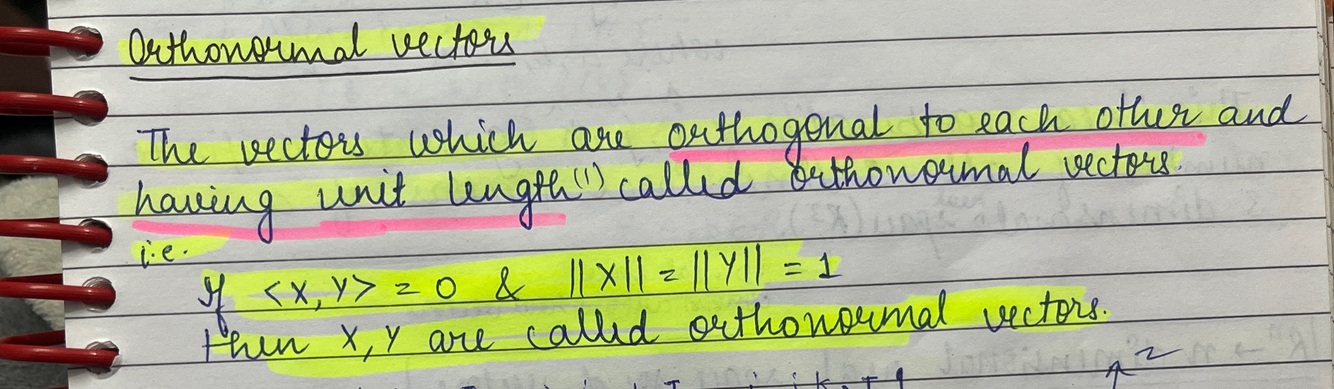 Orthonormal vectors
The vectors which are orthogonal to each other and
having unit length (1) called orthonormal vectors.
i.e.
If <X, Y> = 0 & ||X|| = ||Y|| = 1
then X, Y are called orthonormal vectors.